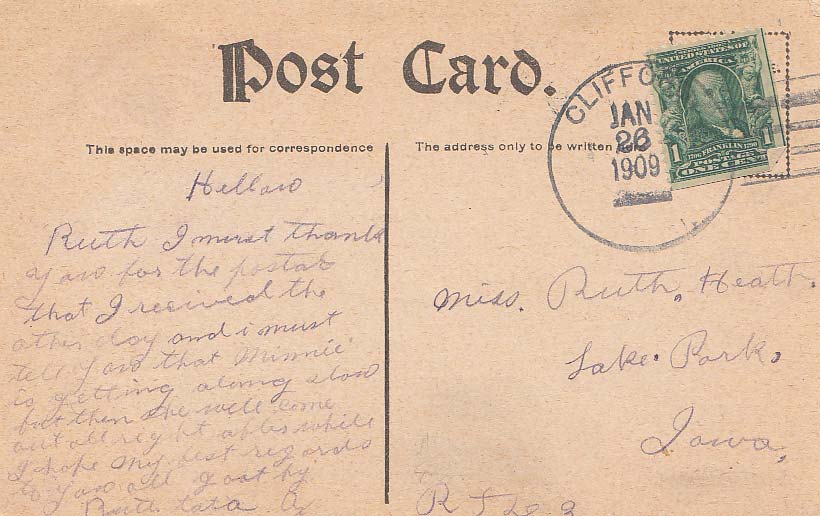 Post Card.
This space may be used for correspondence
The address only to be written
CLIFFO
JAN
26
1909
UNITED STATES OF
AMERICA
1 1790 FRANKLIN 1790 1
POSTAGE
ONE CENT
Hellow
Ruth I must thank
you for the postal
that I received the
other day and i must
tell you that Minnie
is getting along slow
but then she well come
out all right after while
I hope My best regards
to you all good by
Ruth
Miss. Ruth. Heath.
Lake. Park.
Iowa,
R